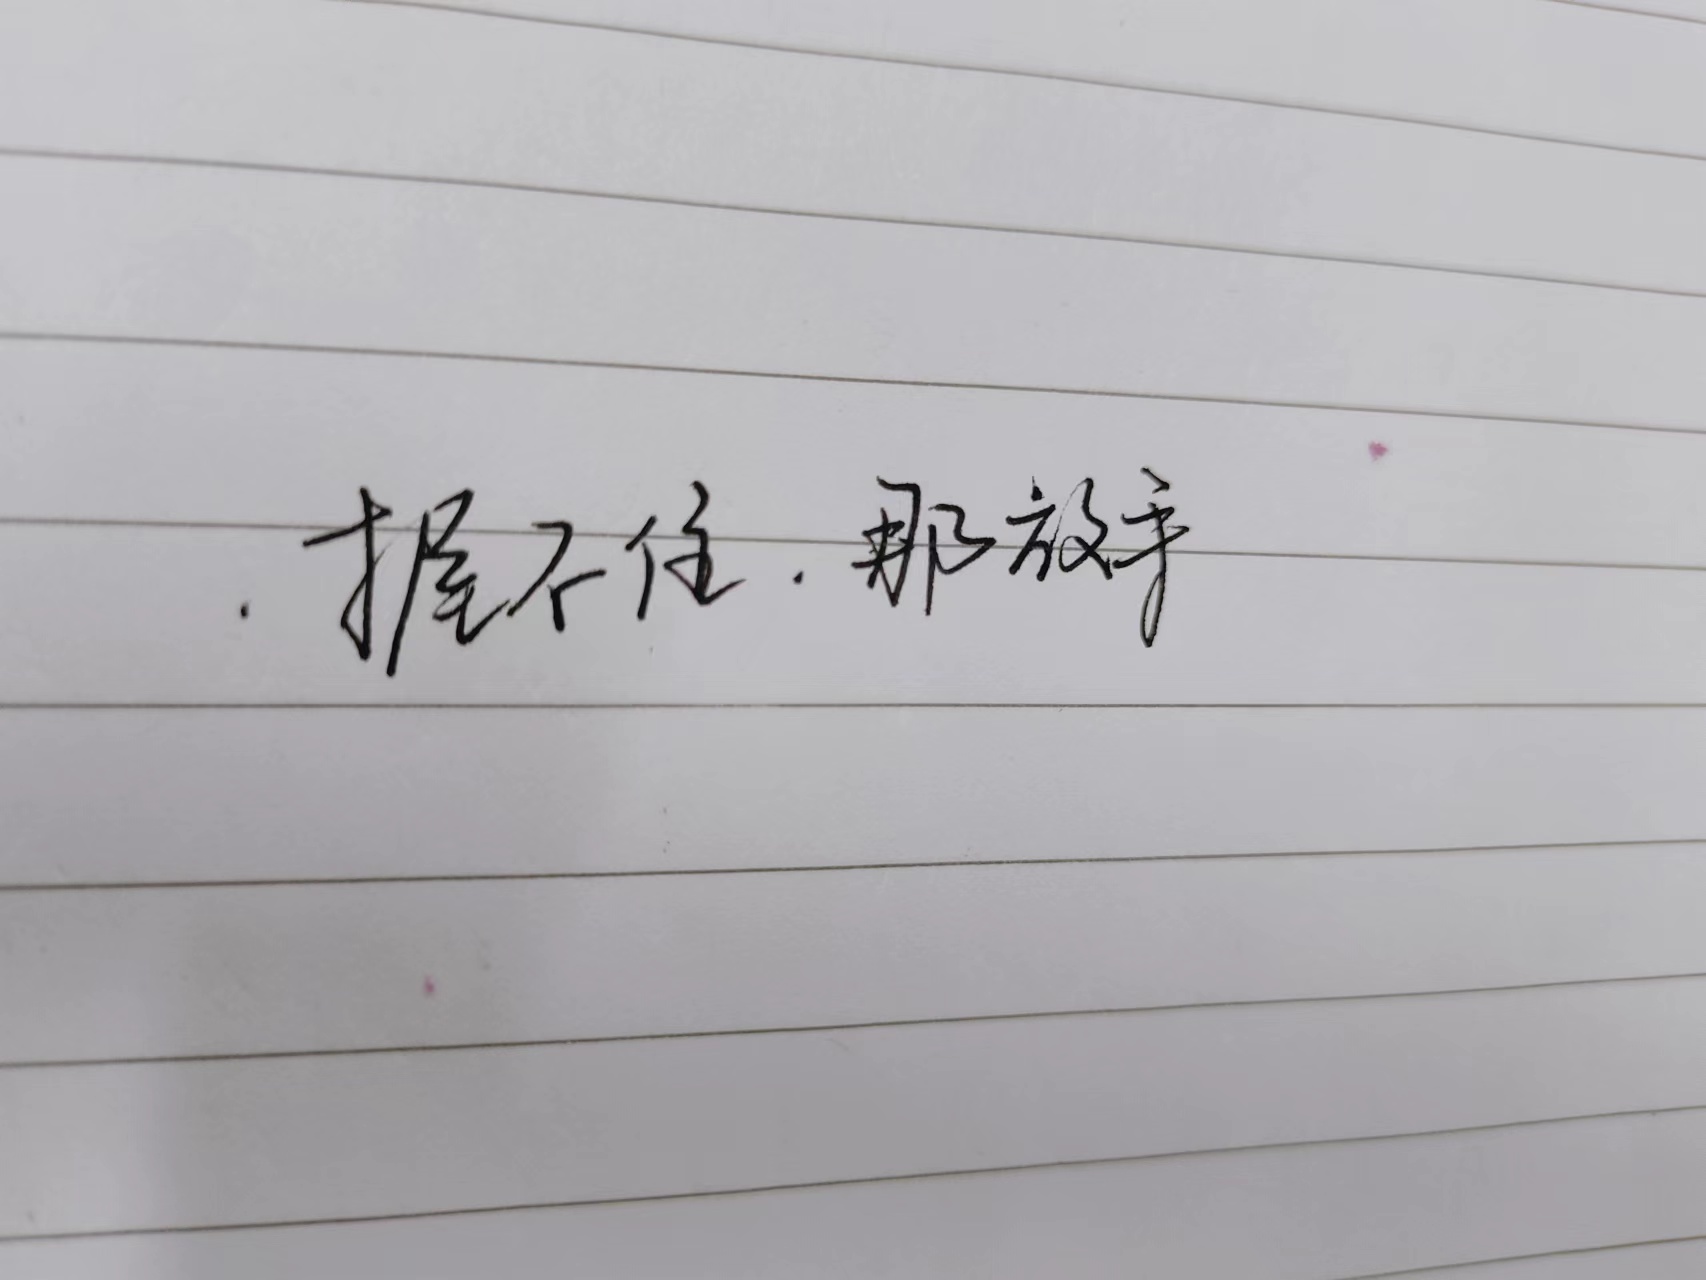 .握不住.那放手